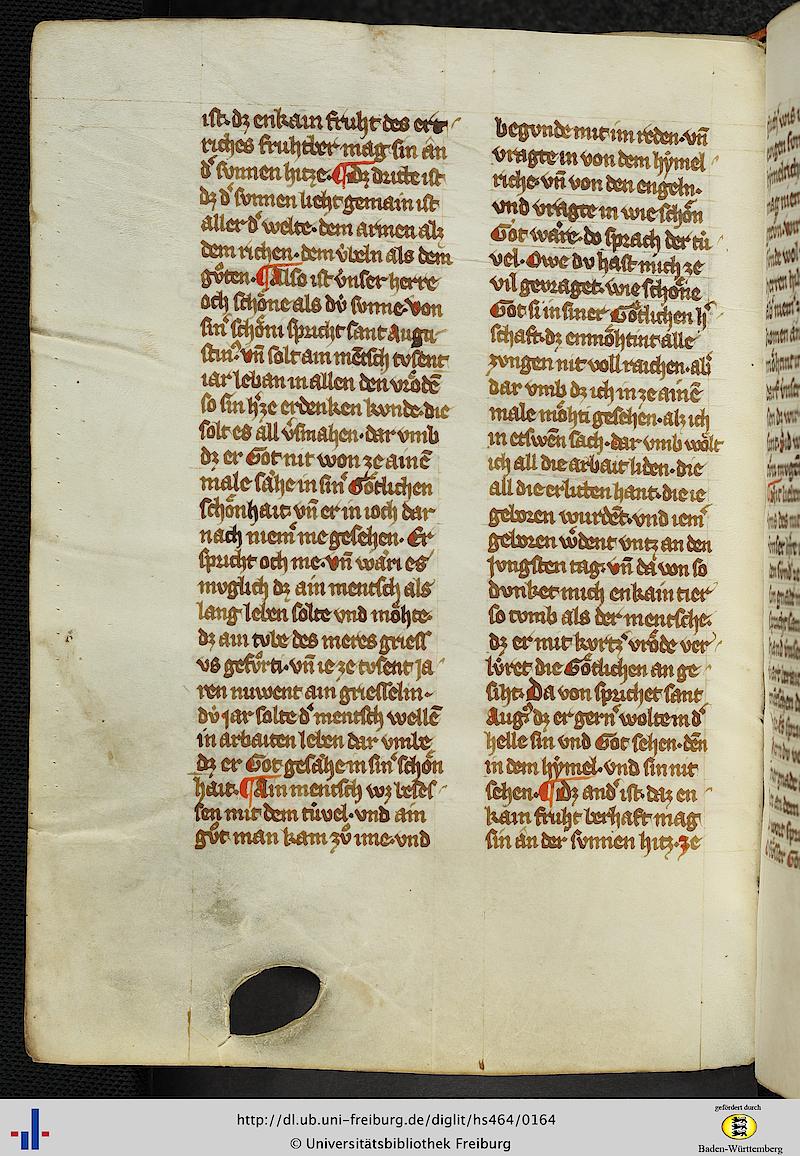 ist· dz enkain fruht des ert
riches fruhtber mag sin an
dˢ sunnen hitze· ¶ Dz dritte ist
dz dˢ sunnen lieht gemain ist
aller dˢ welte· dem armen alz
dem richen· dem v̊beln als dem
gůten· ¶ Also ist v̊nser herre
och schöne als dů sunne· von
sinˢ schöni spricht sant Augu
stinˢ· vn̄ solt ain mētsch tvsent
iar leban in allen den vrödē
so sin hˢze erdenken kvnde· die
solt es all vˢsmahen· dar vmb
dz er Got nit won ze ainē
male sähe in sinˢ Götlichen
schönhait· vn̄ er in ioch dar
nach niemˢ me gesehen· Er
spricht och me· vn̄ wäri es
mvglich dz ain mentsch als
lang leben sölte vnd möhte·
dz ain tvbe des meres griess
vs gefůrti· vn̄ ie ze tvsent ja
ren nuwent ain griesselin·
dů jar sölte dˢ mentsch wellē
in arbaiten leben dar vmbe
dz er Got gesähe in sinˢ schön
hait· ¶ Ain mentsch wz beses
sen mit dem tůvel· vnd ain
gůt man kam zů ime· vnd
begvnde mit im reden· vn̄
vragte in von dem hẏmel
riche· vn̄ von den engeln·
vnd vragte in wie schön
Got wäre· do sprach der tů
vel· Owe dv hast mich ze
vil gevraget· wie schöne
Got si in siner Götlichen hˢ
schaft· dz enmöhtint alle
zvngen nit voll raichen· abˢ
dar vmb dz ich in ze ainē
male möhti gesehen· alz ich
in etswēn sach· dar vmb wölt
ich all die arbait liden· die
all die erliten hant· die ie
geboren wurdēt· vnd iemˢ
geboren wˢdent vntz an den
jvngsten tag· vn̄ da von so
dvnket mich enkain tier
so tvmb als der mentsche·
dz er mit kvrtzˢ vröde ver
lv̊ret die Götlichen an ge
siht· Da von sprichet sant
Augˢ dz er gern wolte in dˢ
helle sin vnd Got sehen· dēn
in dem hẏmel· vnd sin nit
sehen· ¶ Dz andˢ ist· daz en
kain fruht berhaft mag
sin an der svnnen hitz· ze
http://dl.ub.uni-freiburg.de/diglit/hs464/0164
© Universitätsbibliothek Freiburg
gefördert durch
Baden-Württemberg